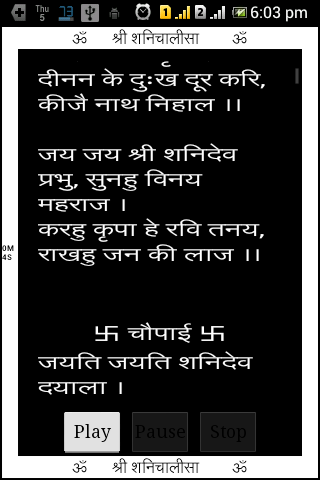 Thu
5
73
1
2
6:03 pm
ॐ श्री शनिचालीसा ॐ
दीनन के दुःख दूर करि,
कीजै नाथ निहाल ।।
जय जय श्री शनिदेव
प्रभु, सुनहु विनय
महराज ।
करहु कृपा हे रवि तनय,
राखहु जन की लाज ।।
卐 चौपाई 卐
जयति जयति शनिदेव
दयाला ।
0M
4S
Play Pause Stop
ॐ श्री शनिचालीसा ॐ